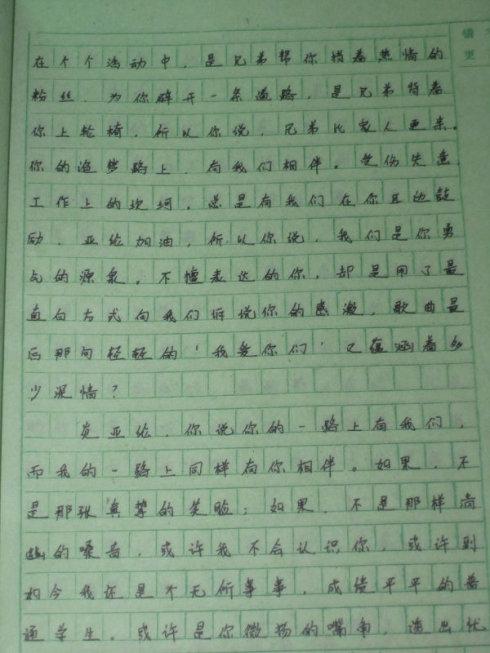 错
更
在个个活动中，是兄弟帮你挡着热情的
粉丝，为你辟开一条道路，是兄弟背着
你上轮椅，所以你说，兄弟比家人更亲。
你的追梦路上，有我们相伴。受伤失意
工作上的坎坷，总是有我们在你身边鼓
励，亚纶加油，所以你说，我们是你勇
气的源泉。不懂表达的你，却是用了最
直白方式向我们诉说你的感激，歌曲最
后那句轻轻的‘我爱你们’又蕴涵着多
少深情？
炎亚纶，你说你的一路上有我们，
而我的一路上同样有你相伴。如果，不
是那张真挚的笑脸；如果，不是那样清
幽的嗓音，或许我不会认识你，或许到
如今我还是个无所事事，成绩平平的普
通学生。或许是你微扬的嘴角，透出忧